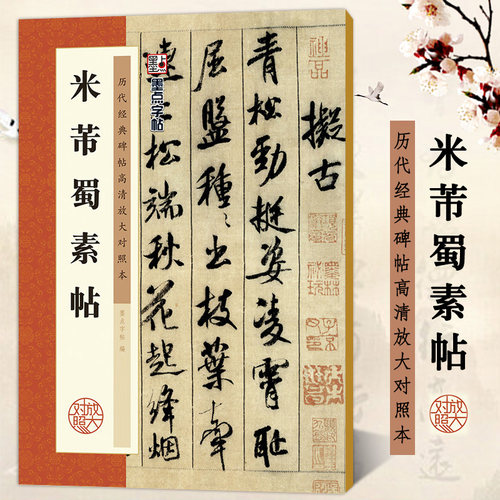 米芾蜀素帖
历代经典碑帖高清放大对照本
墨点字帖 编
放大对照
墨点字帖
擬古
青松勁挺姿凌霄恥
屈盤種〻出枝葉牽
連上松端秋花起絳烟
米芾蜀素帖
历代经典碑帖高清放大对照本
放大对照